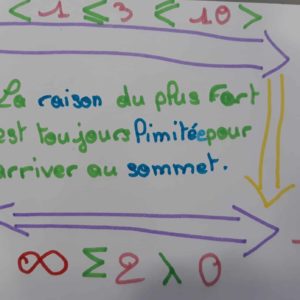 < 1 ⩽ 3 ⩽ 10 >
La raison du plus Fort
est toujours Pimitée pour
arriver au sommet.
∞ Σ 2 λ 0